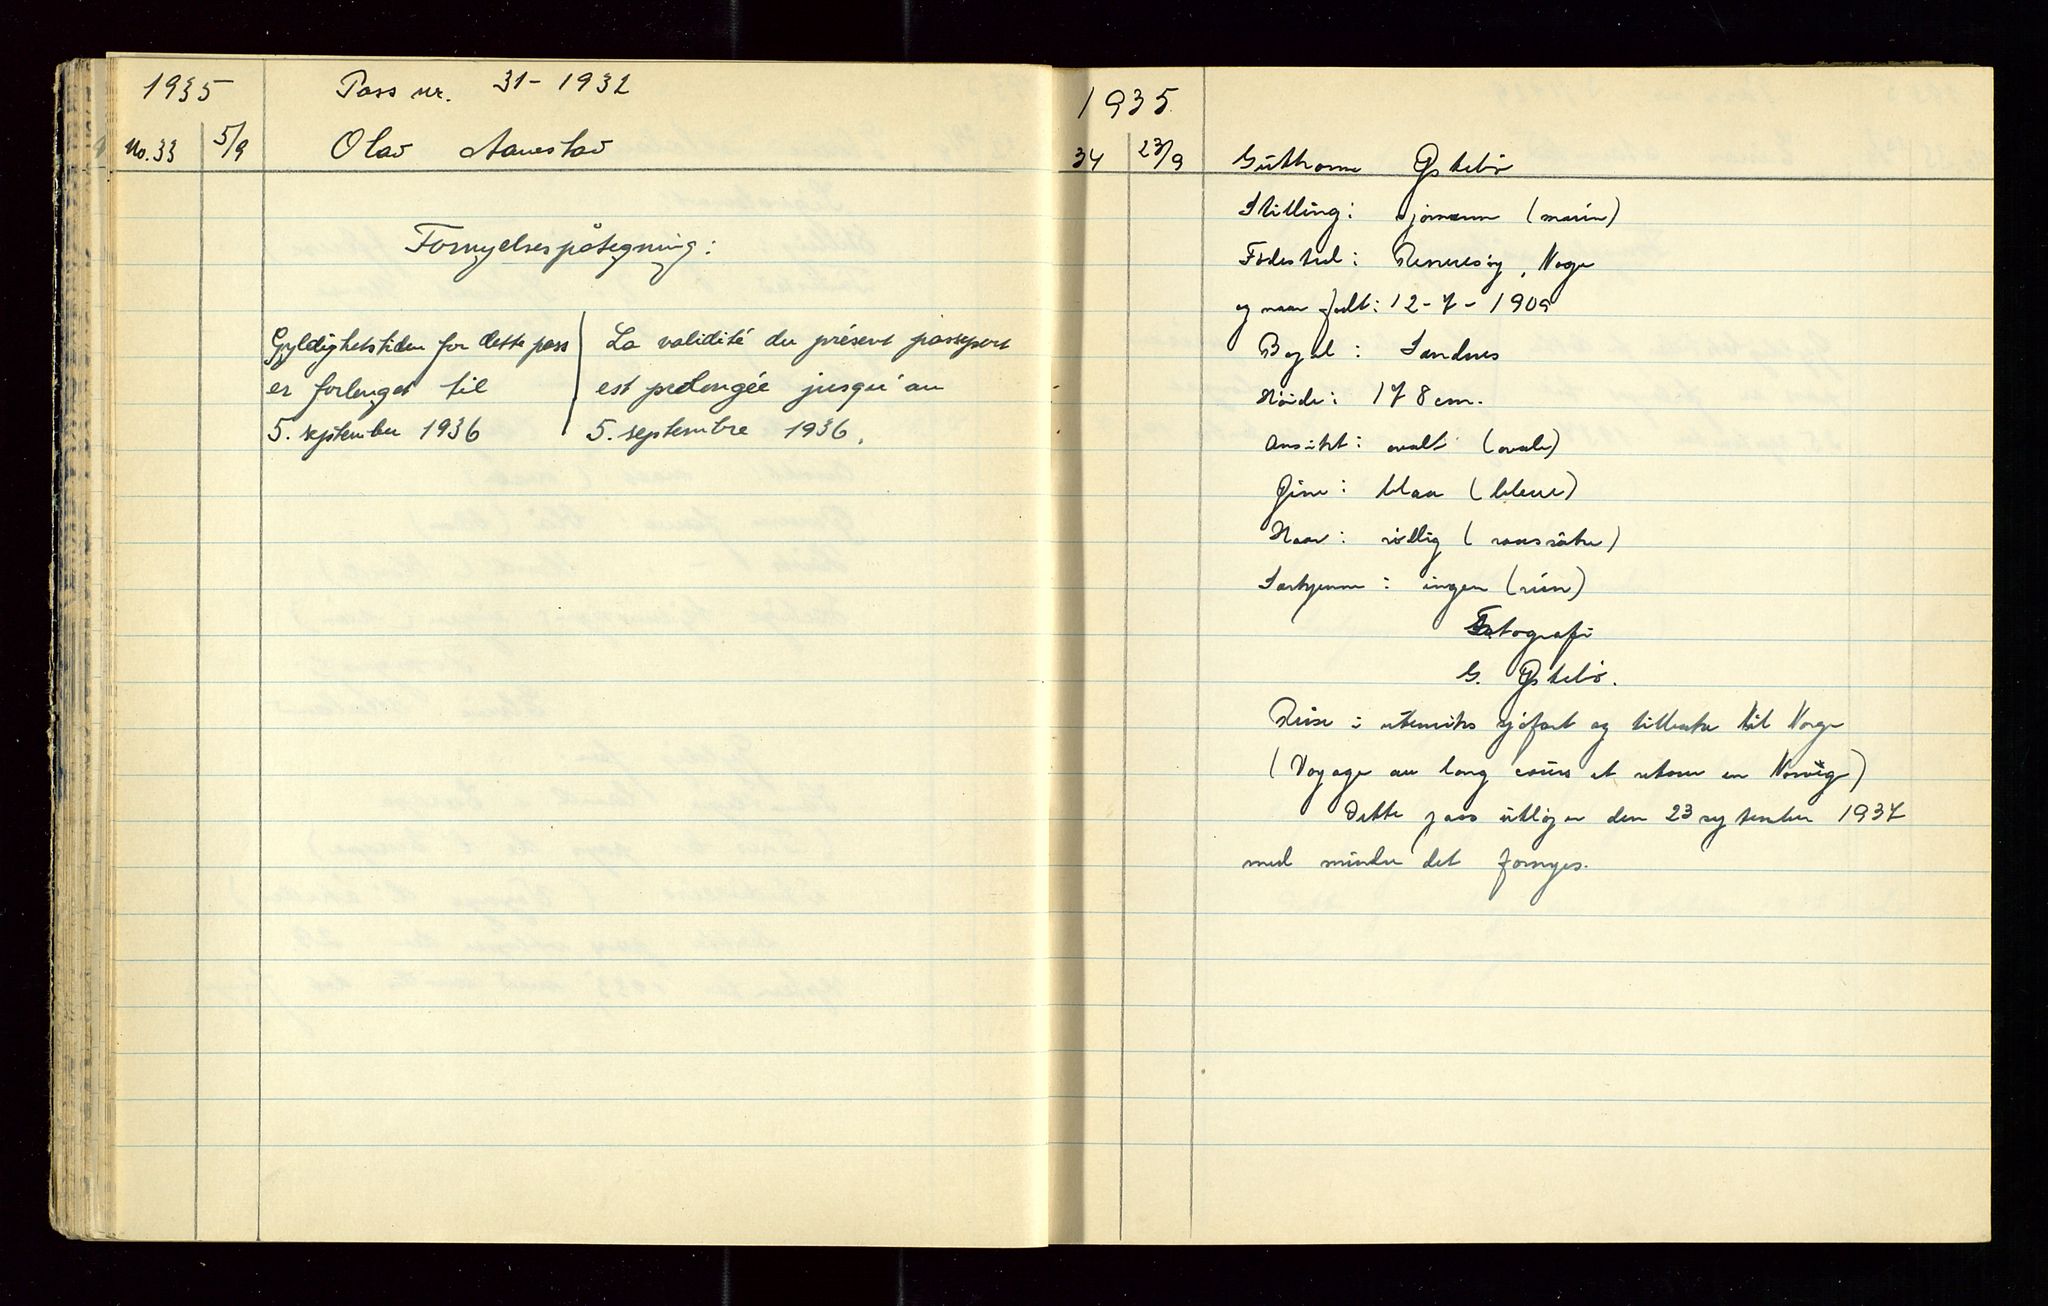 1935 Pass nr. 31 - 1932
No. 33 5/9 Olav Aanestad
Fornyelsespåtegning:
Gyldighetstiden for dette pass
er forlenget til
5. september 1936
La validité du présent passeport
est prolongée jusqu'au
5. septembre 1936.
1935.
34 23/9 Guthorm Østebö
Stilling: sjömann (marin)
Födested: Rennesöy, Norge
og naar født: 12-7-1909
Bopel: Sandnes
Høide: 178 cm.
Ansikt: ovalt (ovale)
Öine: blaa (bleue)
Haar: rödlig (roussâtre)
Særkjenne: ingen (rien)
Fotografi
G. Østebö.
Reise i utenriks sjöfart og tilbake til Norge
(Voyage au long cours et retour en Norvège)
Dette pass utlöper den 23 september 1937
med mindre det fornyes.